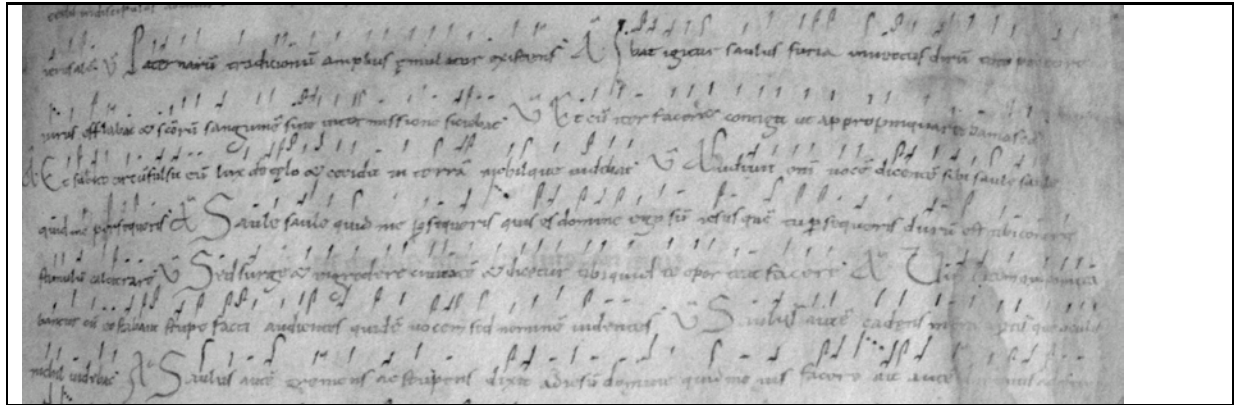 V Paternarũ traditionũ amplius emulator existens A Ibat igitur saulus furia invectus dirũ
virus efflabat & scõrũ sanguinẽ sine intermissione siciebat V Et cũ iter facer& contigit ut appropinquar& damasco
A Et subito circũfulsit eũ lux de celo & cecidit in terrã nichilque videbat V Audivit eni vocẽ dicentẽ sibi saule saule
quid me persequeris A Saule saule quid me p̃sequeris quis es domine ego sũ iesus quẽ tu p̃sequeris durũ est tibi contra
stimulũ calcitrare V Sed surge & ingredere civitatẽ & dicetur tibi quid te oporteat facere A Viri
bantur cũ eo stabant stupefacti audientes quidẽ vocem sed neminẽ videntes V Saulus autẽ cadens in terra apertisque oculis
nichil videbat A Saulus autẽ tremens ac stupens dixit ad iesũ domine quid me vis facere ait autẽ